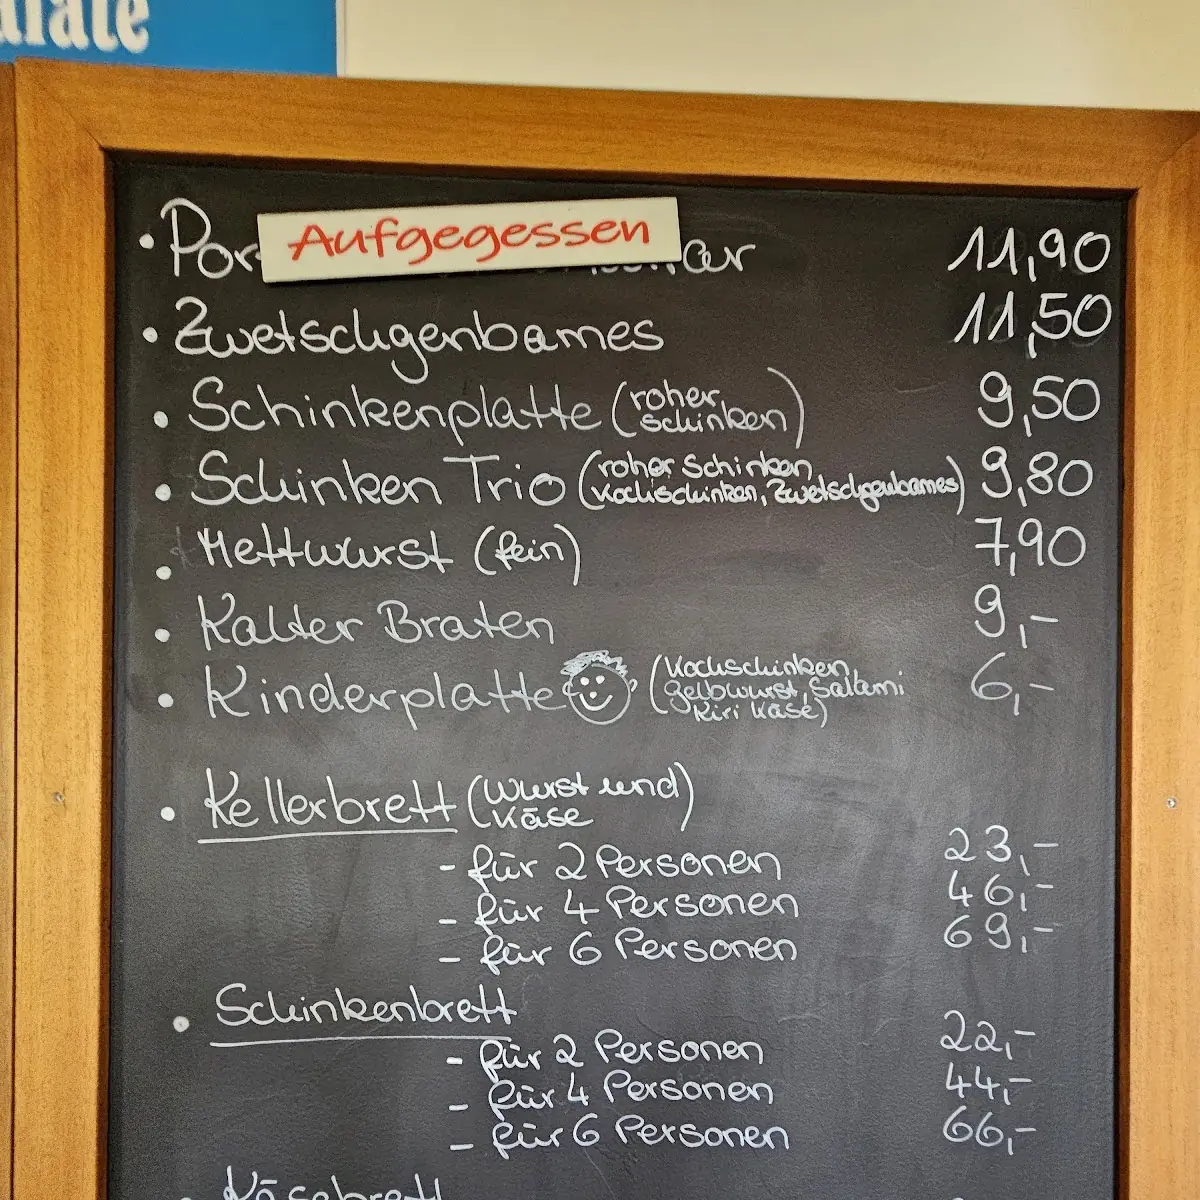 Aufgegessen
• Por 11,90
• Zwetschgenbames 11,50
• Schinkenplatte (roher Schinken) 9,50
• Schinken Trio (roher Schinken, Kochschinken, Zwetschgenbames) 9,80
• Mettwurst (fein) 7,90
• Kalter Braten 9,-
• Kinderplatte (Kochschinken, Gelbwurst, Salami Kiri Käse) 6,-
• Kellerbrett (Wurst und Käse)
- für 2 Personen 23,-
- für 4 Personen 46,-
- für 6 Personen 69,-
• Schinkenbrett
- für 2 Personen 22,-
- für 4 Personen 44,-
- für 6 Personen 66,-
• Käsebrett